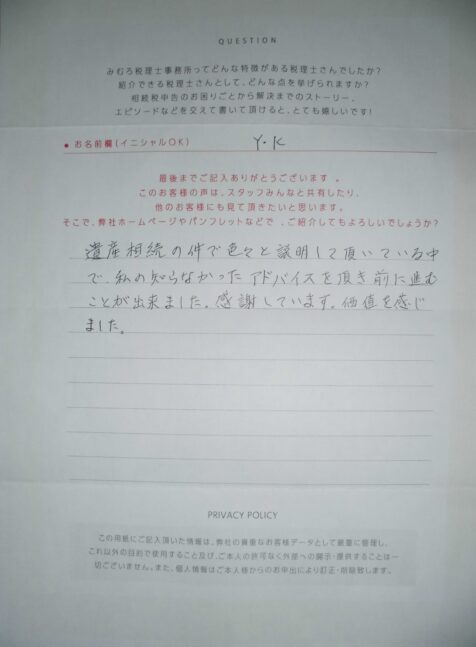 QUESTION
みむろ税理士事務所ってどんな特徴がある税理士さんでしたか?
紹介できる税理士さんとして、どんな点を挙げられますか?
相続税申告のお困りごとから解決までのストーリー、
エピソードなどを交えて書いて頂けると、とても嬉しいです!
● お名前欄(イニシャルOK)
Y・K
最後までご記入ありがとうございます 。
このお客様の声は、スタッフみんなと共有したり、
他のお客様にも見て頂きたいと思います。
そこで、弊社ホームページやパンフレットなどで 、ご紹介してもよろしいでしょうか?
遺産相続の件で色々と説明して頂いている中
で、私の知らなかったアドバイスを頂き前に進む
ことが出来ました。感謝しています。価値を感じ
ました。
PRIVACY POLICY
この用紙にご記入頂いた情報は、弊社の貴重なお客様データとして厳重に管理し、
これ以外の目的で使用すること及び、ご本人の許可なく外部への開示・提供することは一
切ございません。また、個人情報はご本人様からのお申出により訂正・削除致します。